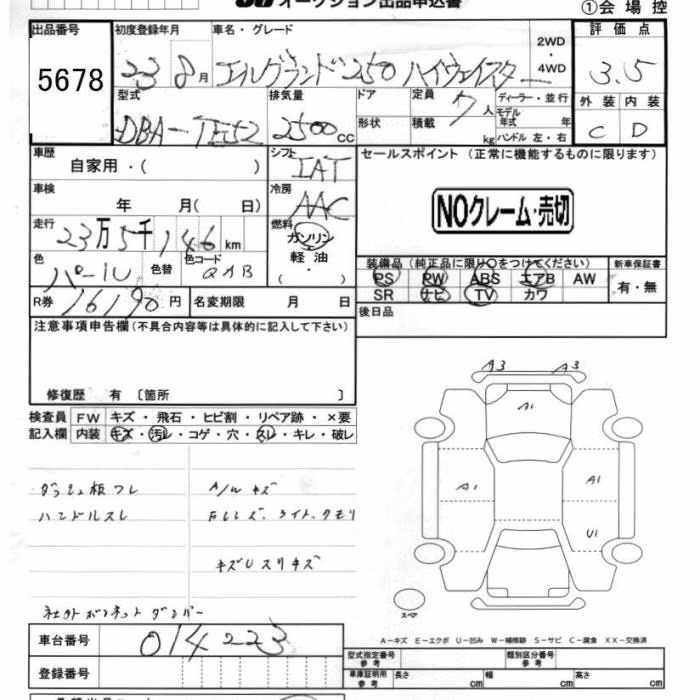 オークション出品申込書
①会場控
出品番号 初度登録年月 車名・グレード 評価点
5678 23 8月 エルグランド 250 ハイウェイスター 2WD・4WD 3.5
型式 排気量 ドア 定員 7人 ディーラー・並行 外装 内装
DBA-TE52 2500cc 形状 積載 kg モデル年式 年 ハンドル 左・右 C D
車歴 自家用・( ) シフト IAT セールスポイント(正常に機能するものに限ります)
車検 年 月( 日) 冷房 AAC NOクレーム・売切
走行 23万5千146km 燃料 ガソリン・軽油 ( ・ )
色 パール 色替 色コード QAB
装備品(純正品に限り○をつけてください) 新車保証書
PS PW ABS エアB AW 有・無
SR ナビ TV カワ
R券 16190円 名変期限 月 日 後日品
注意事項申告欄(不具合内容等は具体的に記入して下さい)
修復歴 有 〔箇所 〕
検査員 FW キズ・飛石・ヒビ割・リペア跡・×要
記入欄 内装 キズ・汚レ・コゲ・穴・スレ・キレ・破レ
A3 A3
A1
A1 A1
U1
A/W キズ
ハンドルスレ
キズUスリキズ
スペア
社外ボンネットダンパー
A-キズ E-エクボ U-凹み W-補修跡 S-サビ C-腐食 XX-交換済
車台番号 014223
型式指定番号 参考 類別区分番号 参考
登録番号 車庫証明用 参考 長さ cm 幅 cm 高さ cm